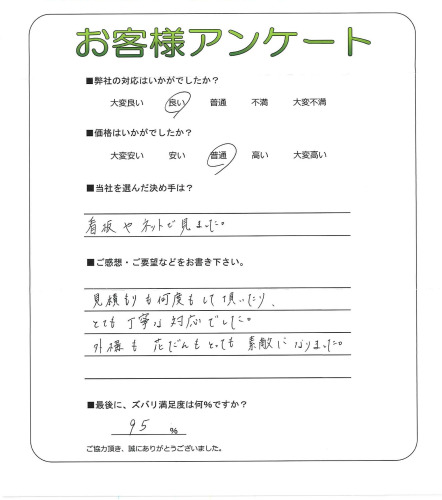 お客様アンケート
■弊社の対応はいかがでしたか？
大変良い 良い 普通 不満 大変不満
■価格はいかがでしたか？
大変安い 安い 普通 高い 大変高い
■当社を選んだ決め手は？
看板やネットで見ました。
■ご感想・ご要望などをお書き下さい。
見積もりも何度もして頂いたり、
とても丁寧な対応でした。
外構も花だんもとっても素敵になりました。
■最後に、ズバリ満足度は何%ですか？
95 %
ご協力頂き、誠にありがとうございました。